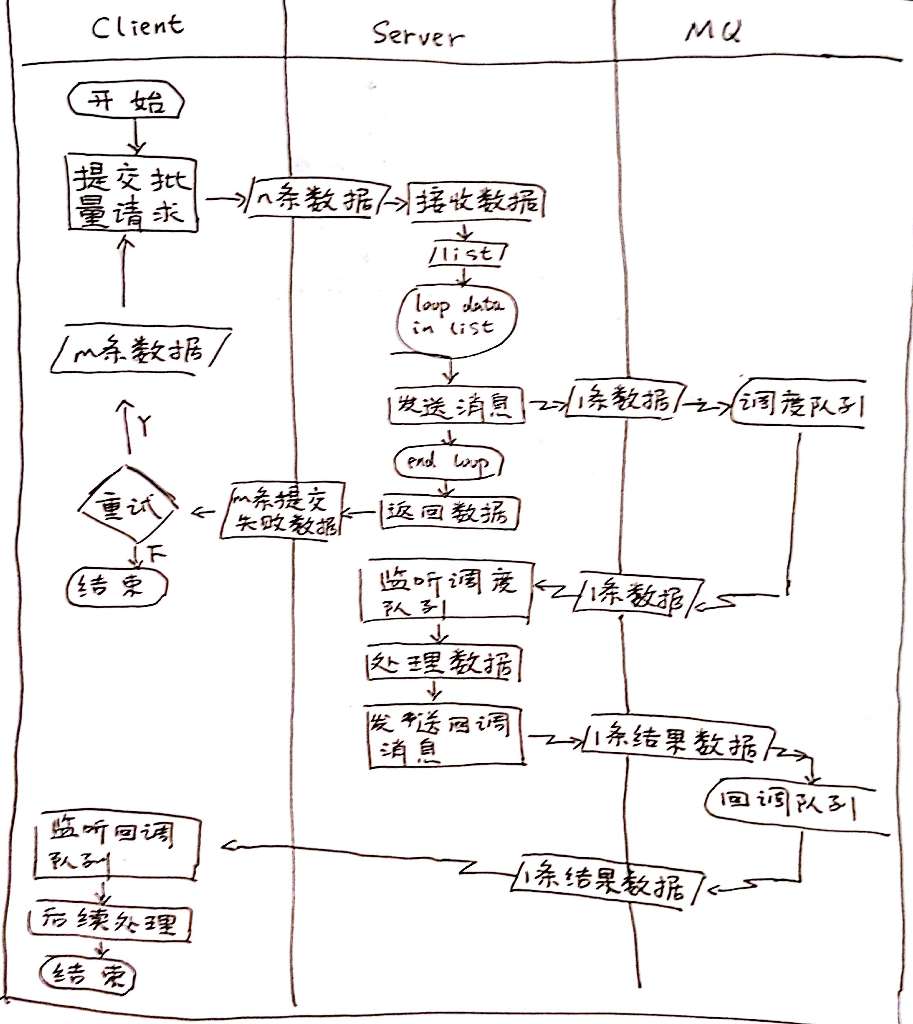 Client
Server
MQ
开始
提交批
量请求
n条数据
接收数据
list
loop data
in list
m条数据
发送消息
1条数据
调度队列
Y
end loop
重试
m条提交
失败数据
返回数据
F
结束
监听调度
队列
1条数据
处理数据
发送回调
消息
1条结果数据
回调队列
监听回调
队列
1条结果数据
后续处理
结束